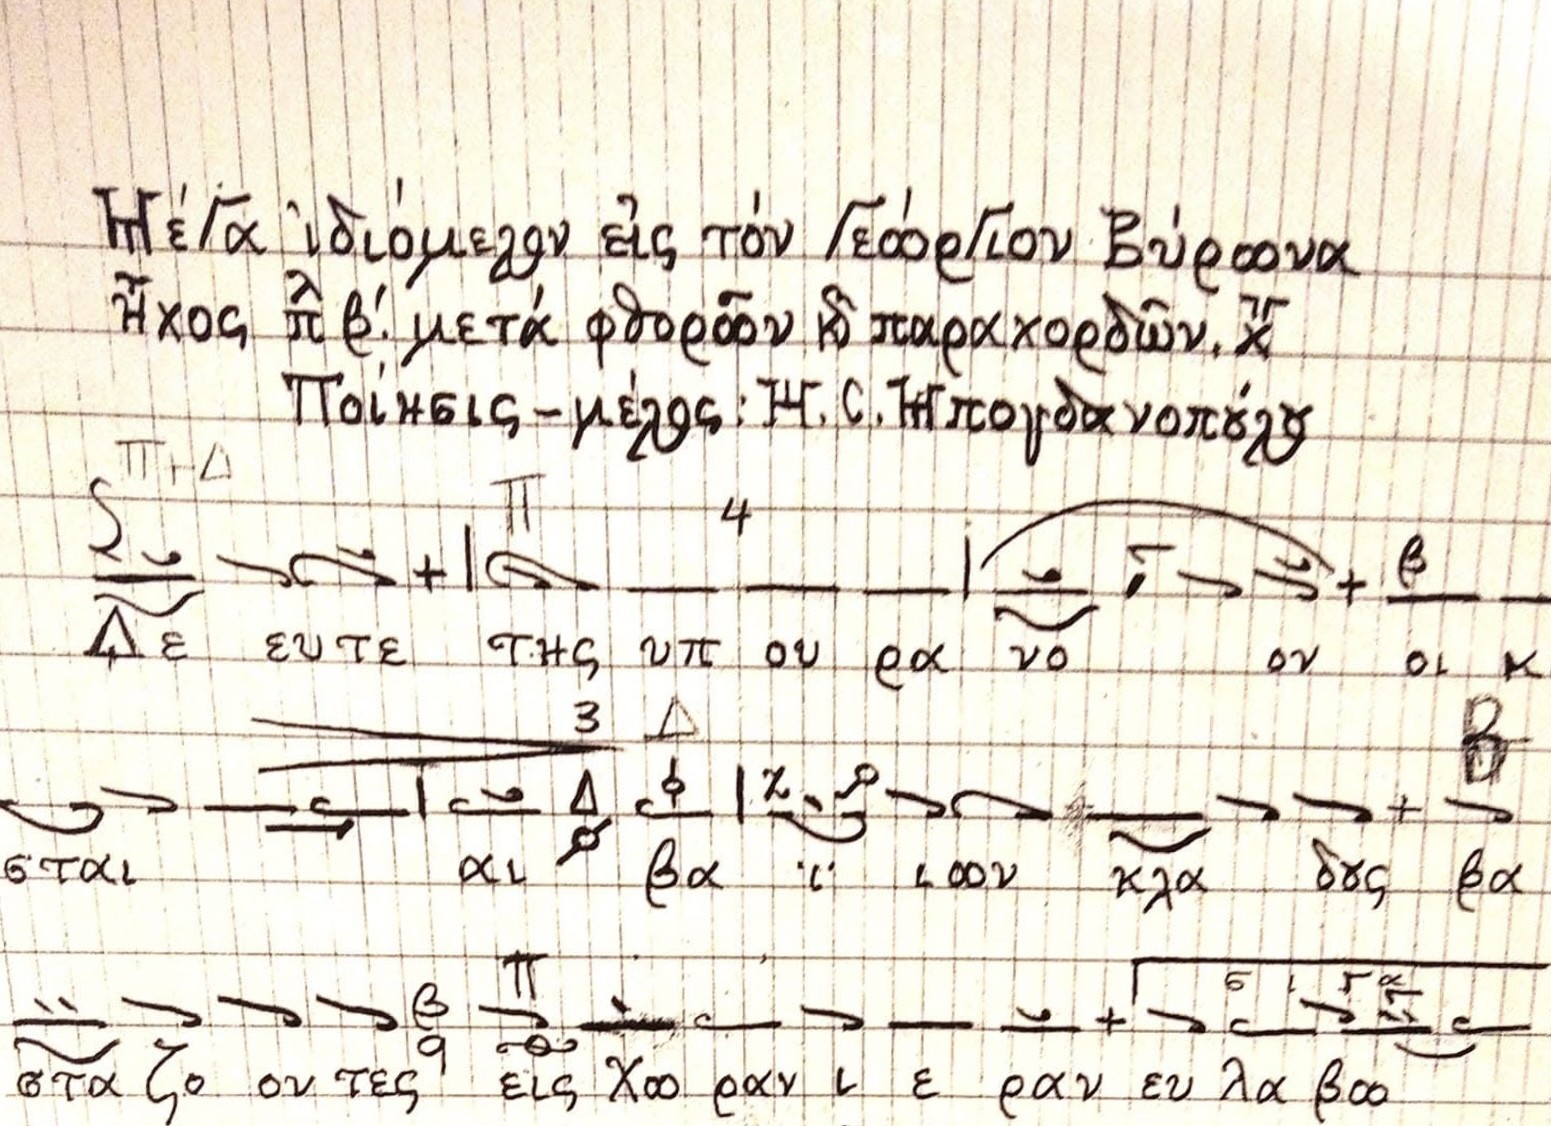 Μέγα ἰδιόμελον εἰς τόν Γεώργιον Βύρωνα
Ἦχος πλ β΄. μετά φθορῶν κ παραχορδῶν.
Ποίησις - μέλος: Μ. С. Μπογδανοπούλου
Π+Δ Π 4
β
Δε ευτε της υπ ου ρα νο ον οι κ
3 Δ Β
Δ
σται αι βα ϊ ιων κλα δους βα
Π
β
στα ζο ον τες εις χω ραν ι ε ραν ευ λα βω